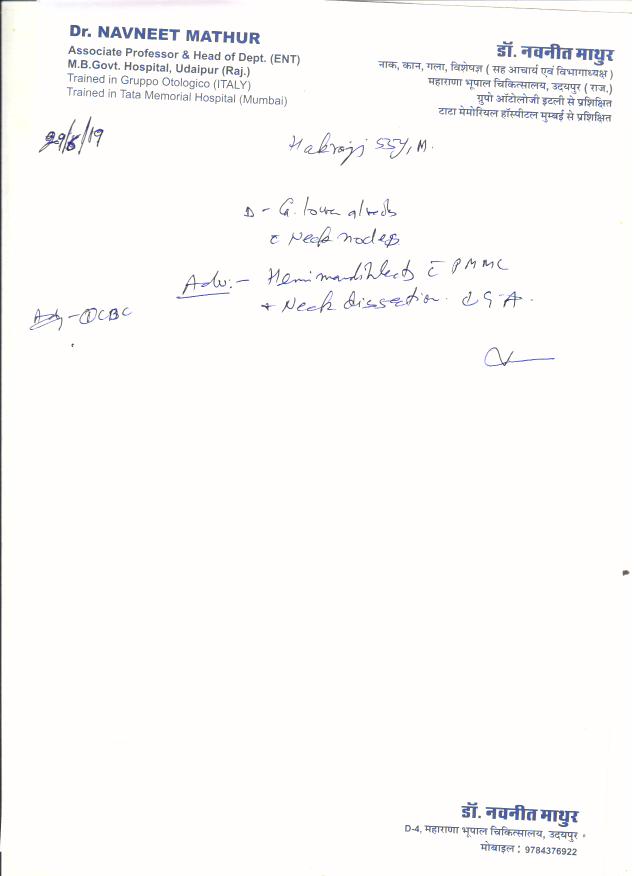 Dr. NAVNEET MATHUR
Associate Professor & Head of Dept. (ENT)
M.B.Govt. Hospital, Udaipur (Raj.)
Trained in Gruppo Otologico (ITALY)
Trained in Tata Memorial Hospital (Mumbai)
डॉ. नवनीत माथुर
नाक, कान, गला, विशेषज्ञ ( सह आचार्य एवं विभागाध्यक्ष )
महाराणा भूपाल चिकित्सालय, उदयपुर ( राज.)
ग्रुपो ऑटोलोजी इटली से प्रशिक्षित
टाटा मेमोरियल हॉस्पीटल मुम्बई से प्रशिक्षित
29/8/19
55y, M.
D - lower
c̄ Neck nodes
Adv:- c̄ PMMC
+ Neck dissection. GA.
Adv - ① CBC
डॉ. नवनीत माथुर
D-4, महाराणा भूपाल चिकित्सालय, उदयपुर
मोबाइल : 9784376922